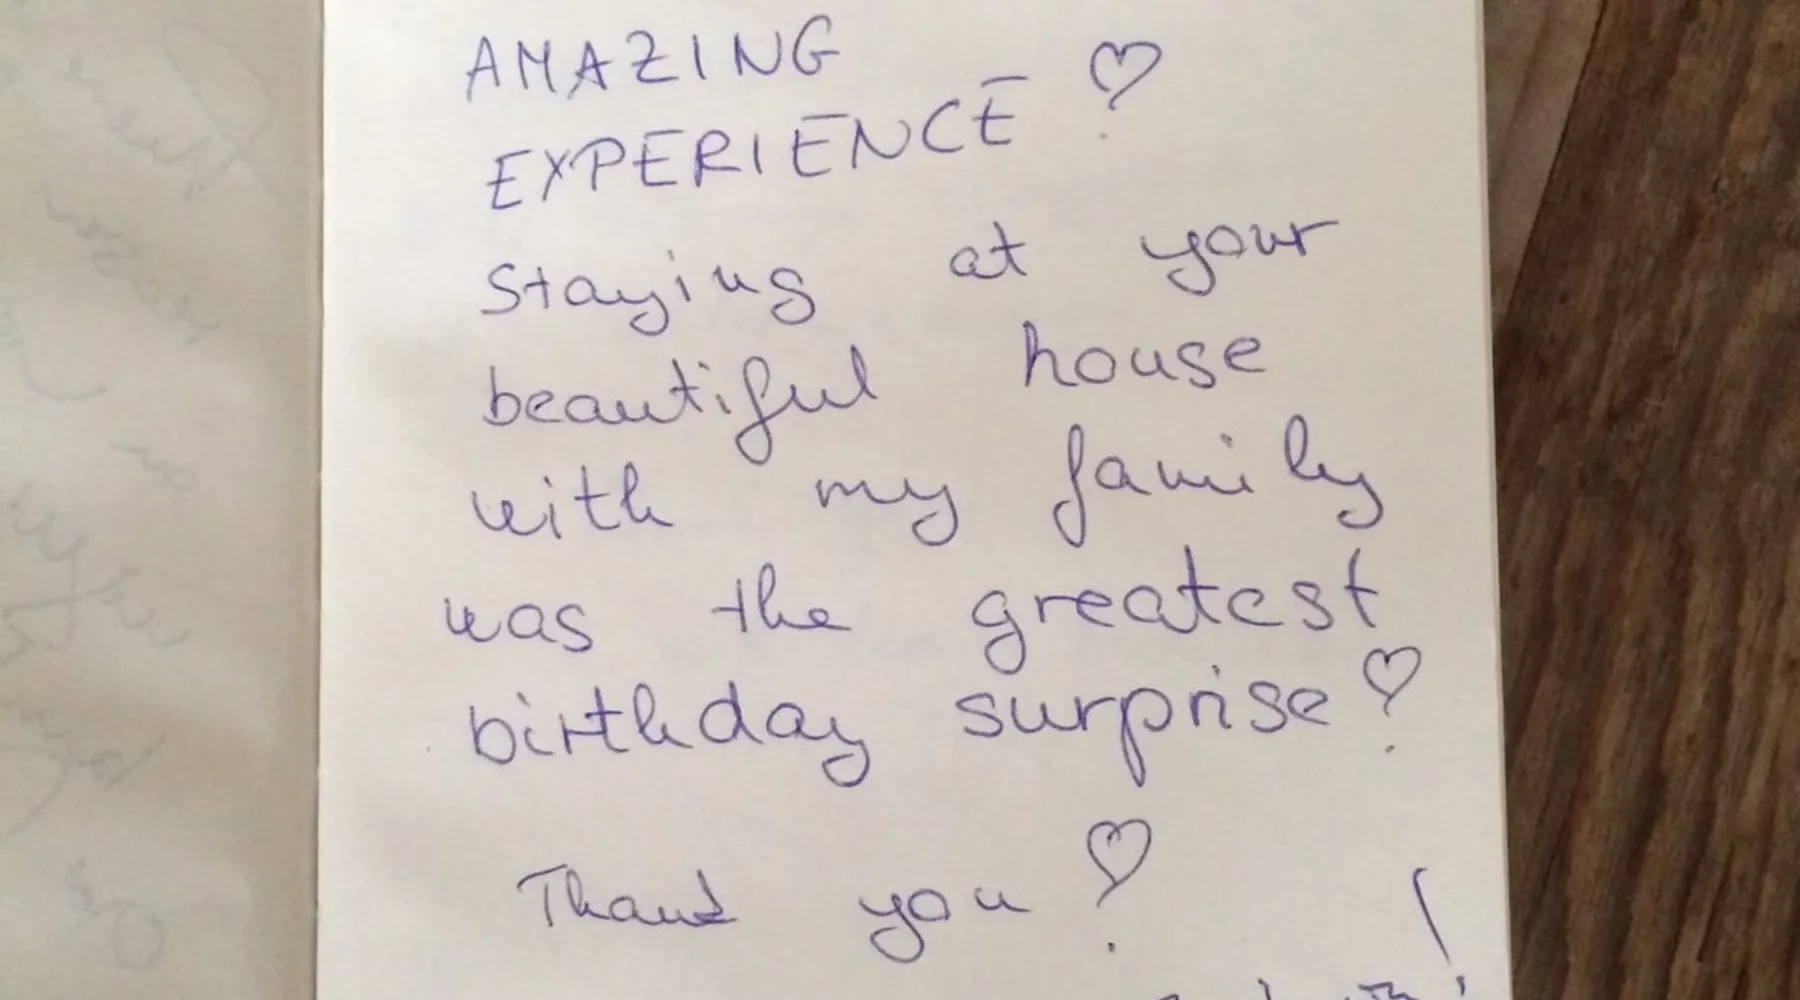 AMAZING
EXPERIENCE ♡
Staying at your
beautiful house
with my family
was the greatest
birthday surprise ♡
Thank you ♡